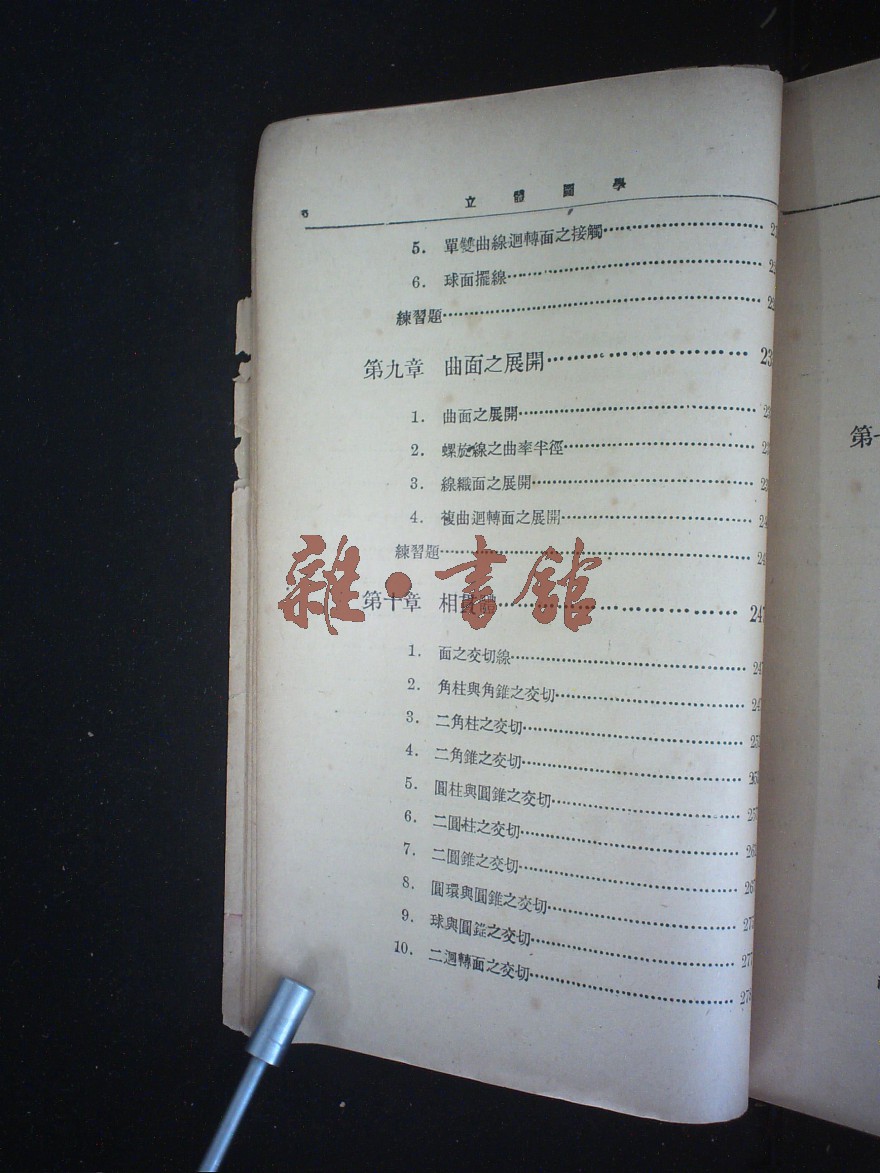 6 立體圖學
5. 單雙曲線迴轉面之接觸
6. 球面擺線
練習題
第九章 曲面之展開 23
1. 曲面之展開
2. 螺旋線之曲率半徑
3. 線織面之展開
4. 複曲迴轉面之展開 24
練習題 24
雜·書館
第十章 相貫體 247
1. 面之交切線 24
2. 角柱與角錐之交切 24
3. 二角柱之交切 25
4. 二角錐之交切
5. 圓柱與圓錐之交切 25
6. 二圓柱之交切 26
7. 二圓錐之交切 267
8. 圓環與圓錐之交切 27
9. 球與圓錐之交切 277
10. 二迴轉面之交切 27
第